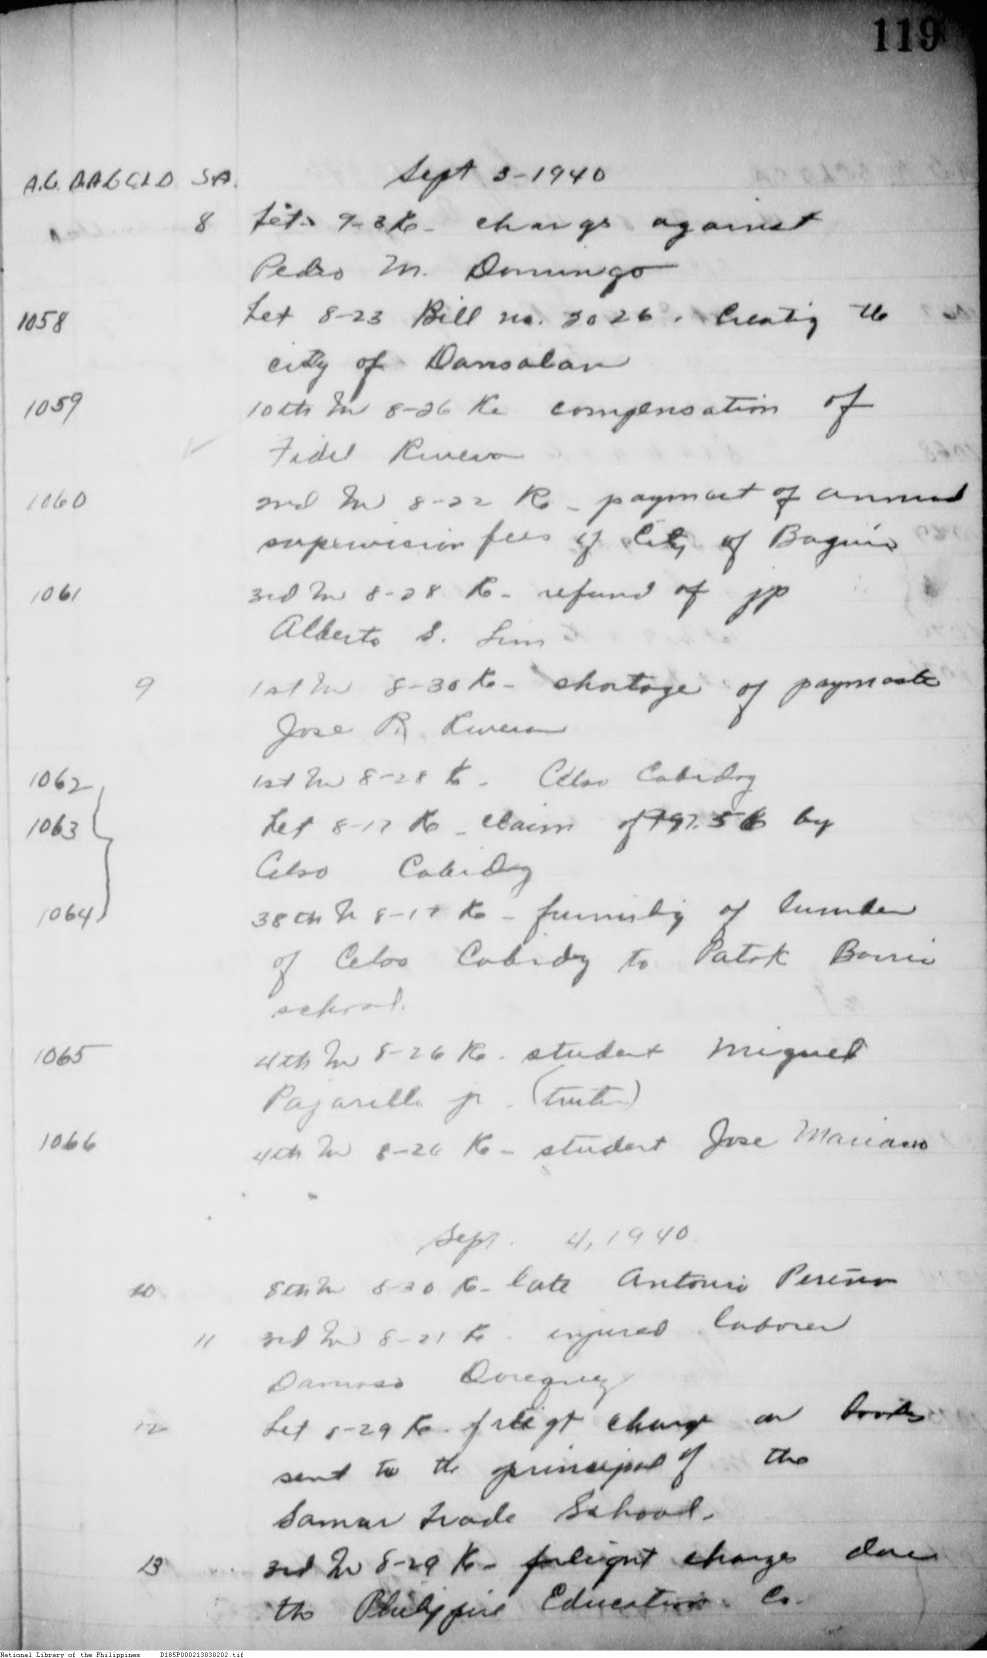 119
Sept 3-1940
8 Let. 9-3 Re- charge against
Pedro M. Domingo
1058 Let 8-23 Bill no. 2026. Creatig the
city of Dansalan
1059 10th In 8-26 Re compensation of
Fidel Rivera
1060 2nd In 8-22 Re- payment of annual
supervision fees of City of Baguio
1061 3rd In 8-28 Re- refund of jp
Alberto S. Lim
9 1st In 8-30 Re- shortage of paymaste
Jose R. Rivera
1062 1st In 8-28 Re- Celso Cabidoy
1063 Let 8-17 Re- claim of ₱97.56 by
Celso Cabidoy
1064 38th In 8-17 Re- furnishig of lumber
of Celso Cabidoy to Patok Barrio
school.
1065 4th In 8-26 Re- student Miguel
Pajarillo jr.
1066 4th In 8-26 Re- student Jose Mariano
Sept. 4, 1940
10 8th In 8-30 Re- late Antonio
11 3rd In 8-21 Re- injured laborer
Damaso
12 Let 8-29 Re- freigt charge on books
sent to the principal of the
Samar Trade School.
13 3rd In 8-29 Re- freight charges due
the Philippine Education Co.
National Library of the Philippines D185P000213830202.tif